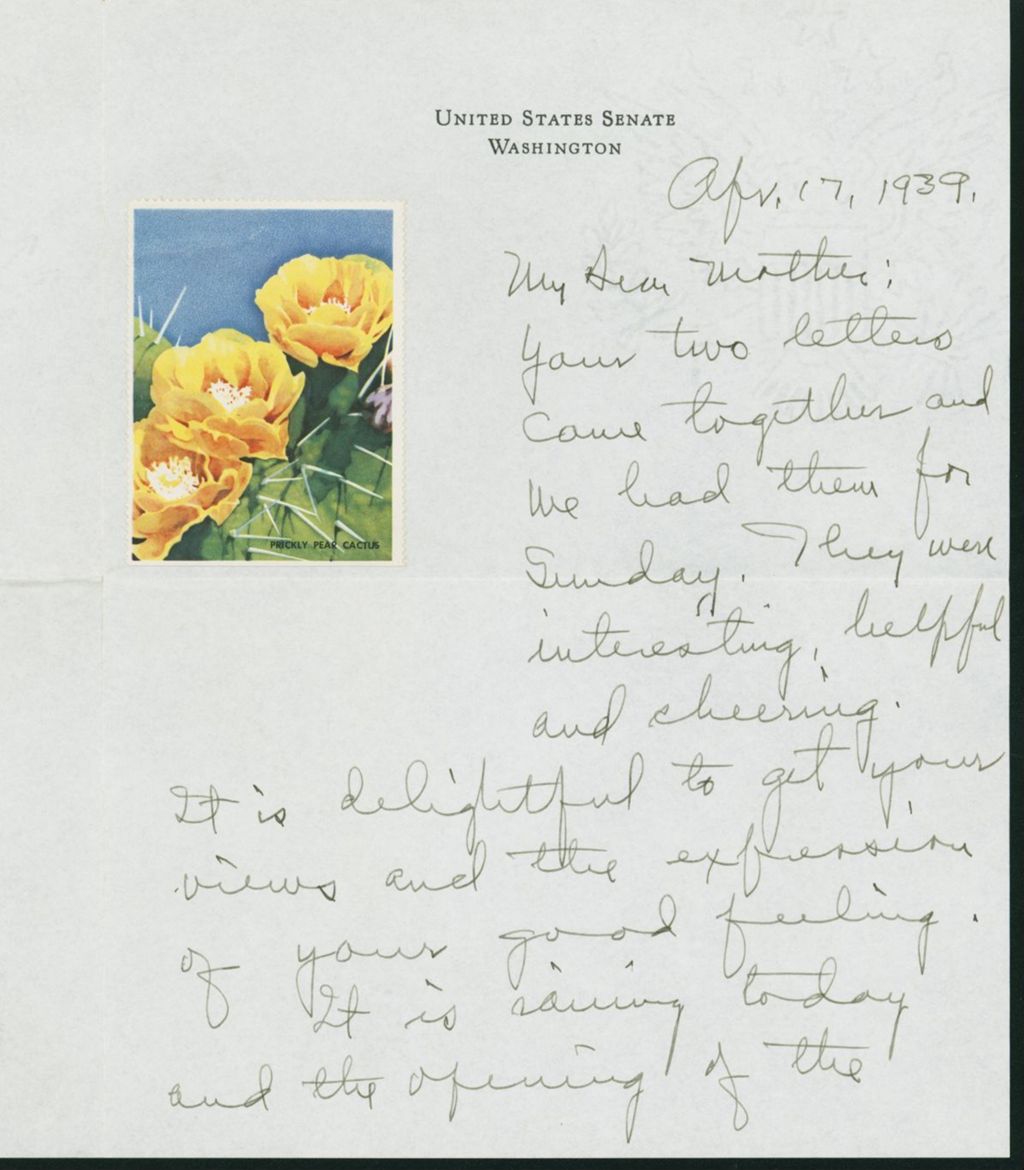 UNITED STATES SENATE
WASHINGTON
Apr. 17, 1939.
My Dear Mother:
Your two letters
came together and
we had them for
Sunday. They were
interesting, helpful
and cheering.
It is delightful to get your
views and the expression
of your good feeling.
It is raining today
and the opening of the
PRICKLY PEAR CACTUS